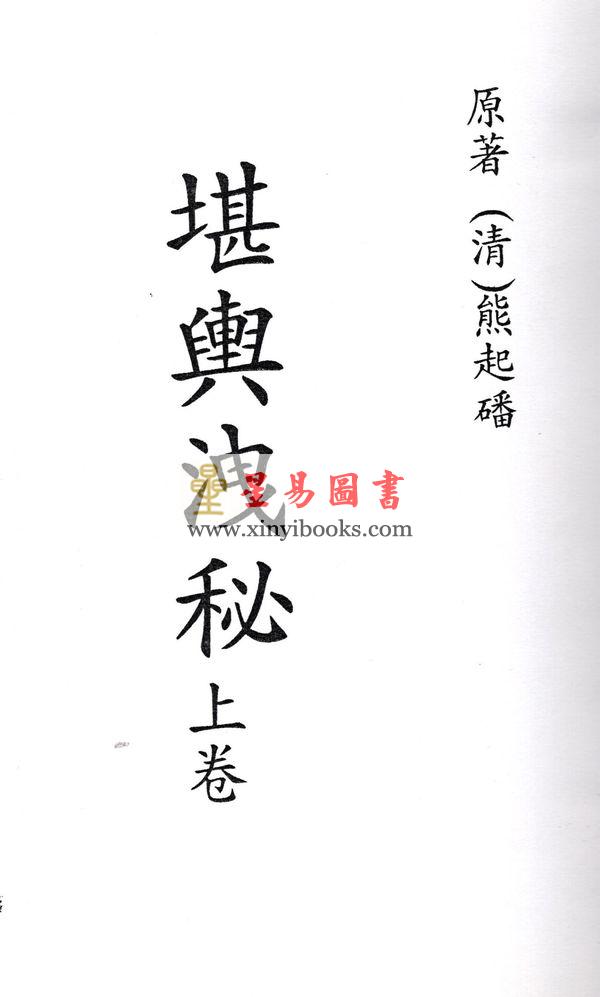 原著（清）熊起磻
堪輿洩秘上卷
星易圖書
www.xinyibooks.com